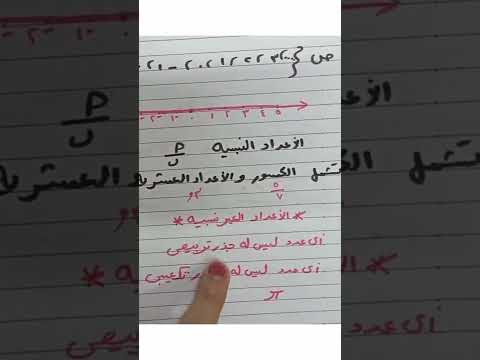 ص { ٠٠٠ ٣ ٢ ٢ ١ ٢ ٠ ٢ -١ ٢
٥ ٤ ٣ ٢ ١ ٠ -١ -٢
الأعداد النسبيه أ/ب
تشمل الكسور والأعداد العشرية
٥/٧
* الأعداد الغير نسبيه *
أى عدد ليس له جذر تربيعى
* أى عدد ليس له جذر تكعيبى *
π